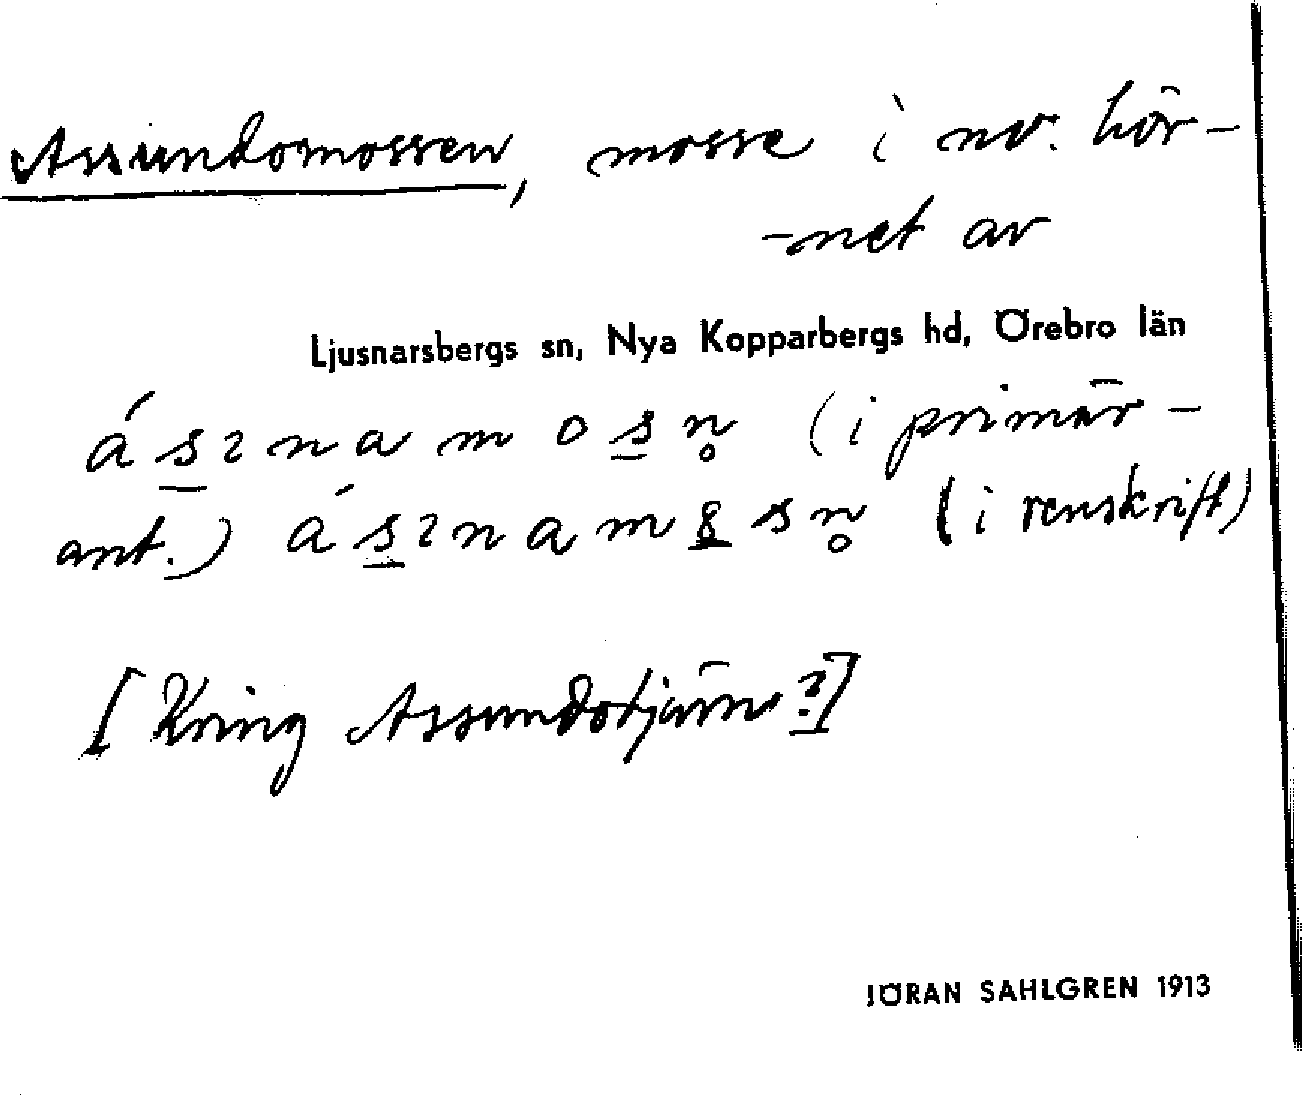 Assundomossen, mosse i nv. hör-
-net av
Ljusnarsbergs sn, Nya Kopparbergs hd, Örebro län
á s̲ ɿ n a m o s̲ n̥ (i primär-
ant.) á s̲ ɿ n a m 8̲ s n̥ (i renskrift)
[Kring Assundotjärn?]
JÖRAN SAHLGREN 1913